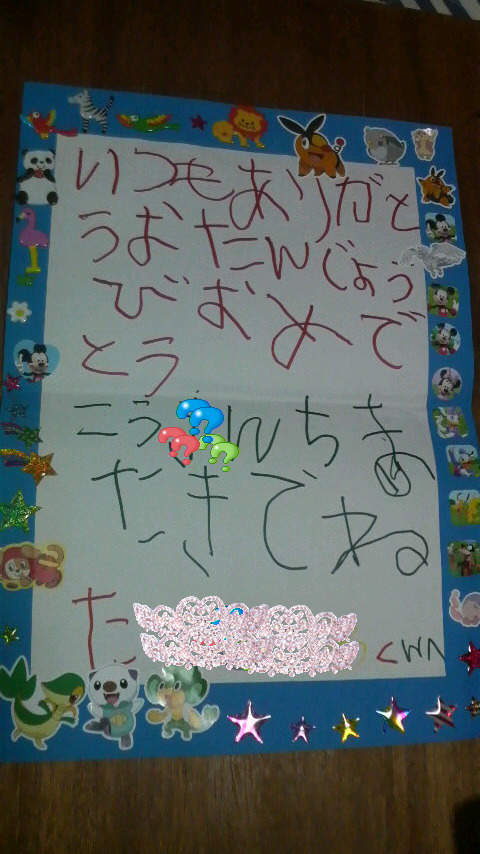 いつもありがと
うおたんじょう
びおめで
とう
こう んちま
だきでね
た くん